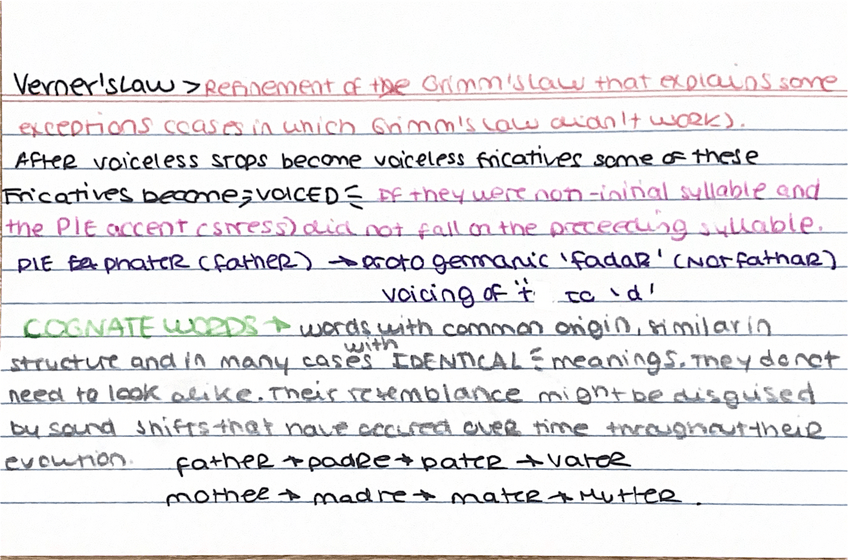 Verner'sLaw > Refinement of the Grimm'slaw that explains some
exceptions (cases in which Grimm's Law didn't work).
After voiceless stops become voiceless fricatives some of these
Fricatives become VOICED If they were non-initial syllable and
the PIE accent (stress) did not fall on the preceeding syllable.
PIE phater (father) → Proto germanic 'fadar' (Not fathar)
voicing of 't' to 'd'
COGNATE WORDS → words with common origin, similar in
structure and in many cases with IDENTICAL meanings. They do not
need to look alike. Their resemblance might be disguised
by sound shifts that have occured over time throughout their
evolution. father → padre → pater → vater
mother → madre → mater → Mutter.